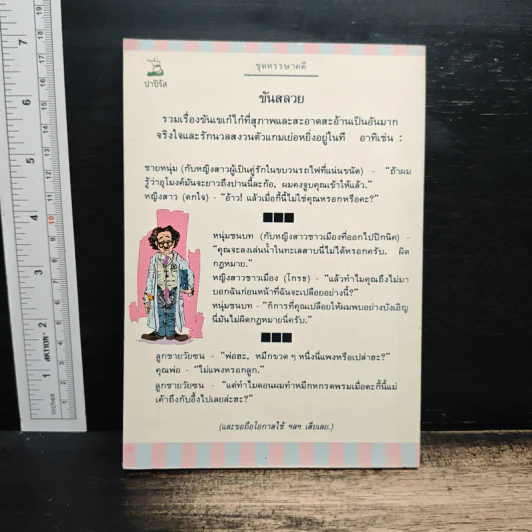 ชุดหรรษาคดี
ปาปิรัส
ขันสลวย
รวมเรื่องขันเขเก๋ไก๋ที่สุภาพและสะอาดสะอ้านเป็นอันมาก
จริงใจและรักนวลสงวนตัวแกมเย่อหยิ่งอยู่ในที อาทิเช่น :
ชายหนุ่ม (กับหญิงสาวผู้เป็นคู่รักในขบวนรถไฟที่แน่นขนัด) - "ถ้าผม
รู้ว่าอุโมงค์มันจะยาวถึงปานนี้ละก้อ, ผมคงจูบคุณเข้าให้แล้ว."
หญิงสาว (ตกใจ) - "อ้าว! แล้วเมื่อกี้นี้ไม่ใช่คุณหรอกหรือคะ?"
หนุ่มชนบท (กับหญิงสาวชาวเมืองที่ออกไปปิกนิค) -
"คุณจะลงเล่นน้ำในทะเลสาบนี่ไม่ได้หรอกครับ. ผิด
กฎหมาย."
หญิงสาวชาวเมือง (โกรธ) - "แล้วทำไมคุณถึงไม่มา
บอกฉันก่อนหน้าที่ฉันจะเปลือยอย่างนี้?"
หนุ่มชนบท - "ก็การที่คุณเปลือยให้ผมพบอย่างบังเอิญ
นี่มันไม่ผิดกฎหมายนี่ครับ."
ลูกชายวัยซน - "พ่อฮะ, หมึกขวด ๆ หนึ่งนี่แพงหรือเปล่าฮะ?"
คุณพ่อ - "ไม่แพงหรอกลูก."
ลูกชายวัยซน - "แต่ทำไมตอนผมทำหมึกหกรดพรมเมื่อตะกี้นี้แม่
เค้าถึงกับอึ้งไปเลยล่ะฮะ?"
(และขอถือโอกาสใช้ ฯลฯ เสียเลย.)
7
6
5
4
3
2
1
10
ACTION 2